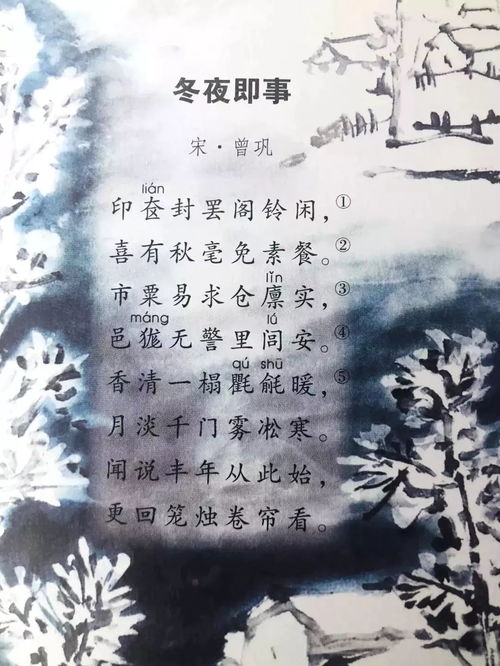 冬夜即事
宋·曾巩
lián
印奁封罢阁铃闲，①
喜有秋毫免素餐。②
lǐn
市粟易求仓廪实，③
máng lǘ
邑尨无警里闾安。④
qú shū
香清一榻氍毹暖，⑤
月淡千门雾凇寒。
闻说丰年从此始，
更回笼烛卷帘看。